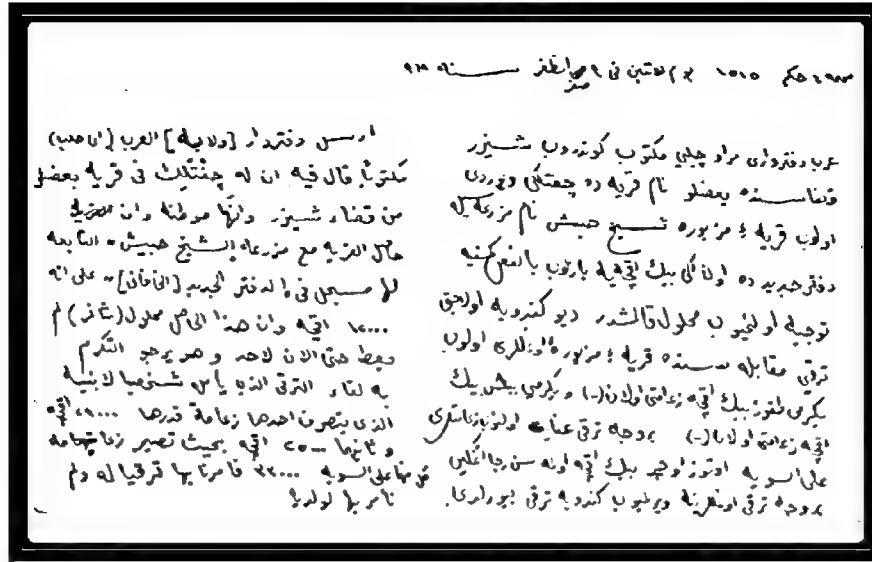 حكم ١٥١٥ يوم لاثنين فى ٩ صفر المظفر سنه
عرب دفتردارى مراد چلبى مكتوب كوندروب شيزر
قضاسنده بعضلو نام قريه ده چفتلكى ويوردى
اولوب قريه ء مزبوره شيخ حبش نام مزرعه ايله
دفتر جديد ده اون ايكى بيك اقچه يازلوب بالفعل كمسنه يه
توجيه اولنميوب محلول قالمشدر ديو كندويه اوله جق
ترقى مقابله سنده قريه ء مزبوره اوغللرى اولوب
يكرمى طقوز بيك اقچه زعامتى اولان (-) و يكرمى بش بيك
اقچه زعامتى اولان (-) بر وجه ترقى عنايت اولنوب زعامتلرى
على السويه اوتوز اوچر بيك اقچه اولمه سن رجا اتمكين
بر وجه ترقى اوغللرينه ويرلميوب كندويه ترقى بيورلدى.
ارسل دفتردار [ولاية] العرب (اى حلب)
مكتوبًا قال فيه ان له چفتلك فى قرية بعضلو
من قضاء شيزر وانها موطنه وان
حاصل القرية مع مزرعة "الشيخ حبيش" التابعة
لها مسجل فى الدفتر الجديد [الخاقانى] على انه
١٢٠٠٠ اقچه وان هذا الحاصل محلول (شاغر) لم
يعط حتى الان لاحد وهو يرجو التكرم
به لقاء الترقى الذى يأمل شخصيا لابنيه
الذى يتصرف احدهما زعامة قدرها ٢٩٠٠٠ اقچه
وثانيهما ٢٥٠٠٠ اقچه بحيث تصير زعامتهما
على السويه ٣٣٠٠٠ فأمرنا بها ترقيا له ولم
نأمر بها لولديه